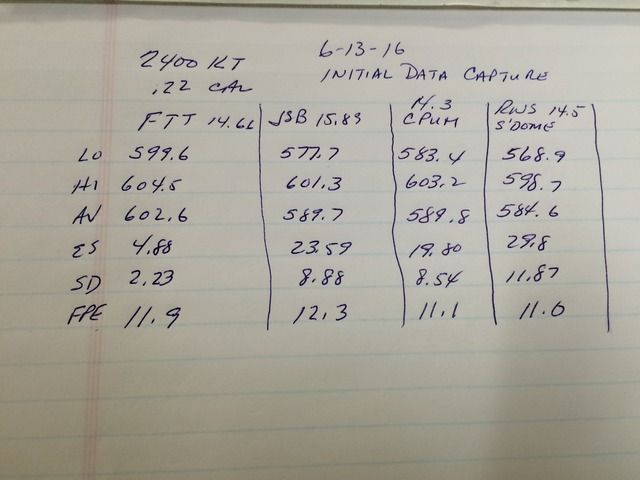 2400 KT 6-13-16
.22 CAL INITIAL DATA CAPTURE
FTT 14.66 JSB 15.83 14.3 CPUM RWS 14.5 S'DOME
LO 599.6 577.7 583.4 568.9
HI 604.5 601.3 603.2 598.7
AV 602.6 589.7 589.8 584.6
ES 4.88 23.59 19.80 29.8
SD 2.23 8.88 8.54 11.87
FPE 11.9 12.3 11.1 11.0